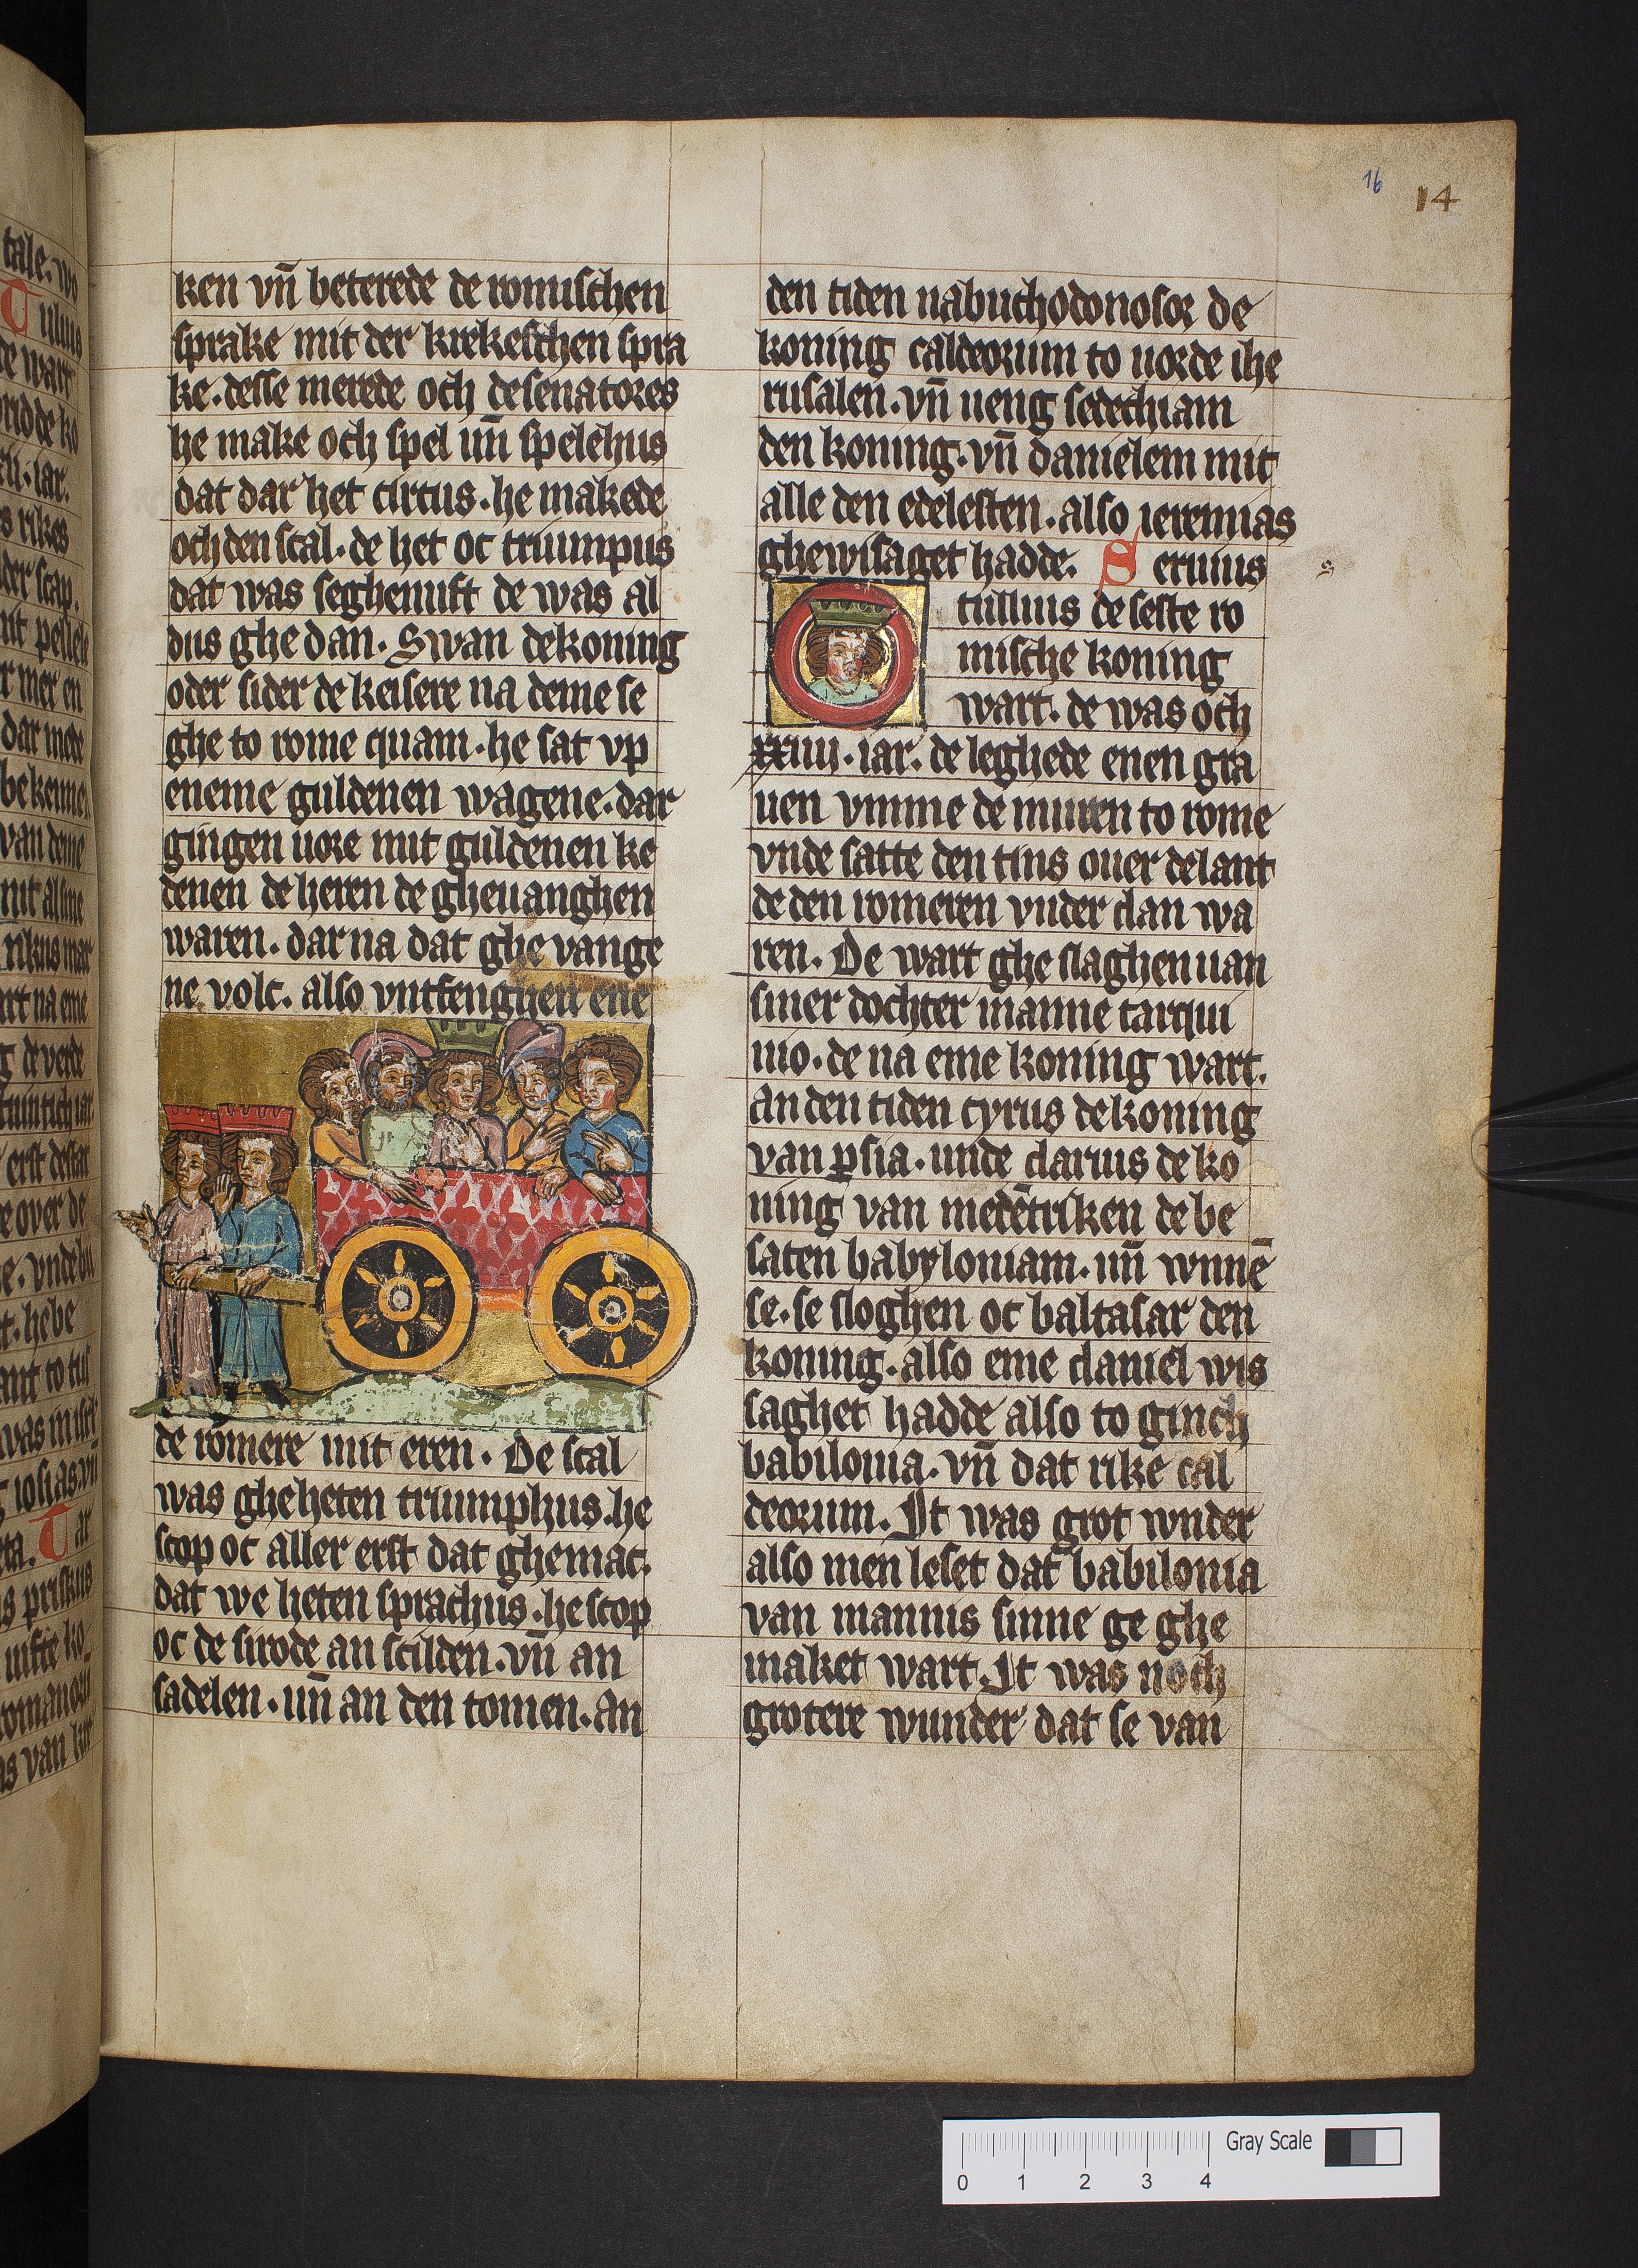 16 14
ken vn̄ beterede de romischen
sprake mit der kriekeschen spra
ke. desse merede och de senatores
he make och spel un̄ spelehus
dat dar het circus. he makede
och den scal. de het oc triumpus
dat was seghenuft de was al
dus ghe dan. Swan de koning
oder sider de keisere na deme se
ghe to rome quam. he sat vp
eneme guldenen wagene. dar
gingen uore mit guldenen ke
denen de heren de gheuanghen
waren. dar na dat ghe vange
ne volc. also vntfenghen ene
de romere mit eren. De scal
was gheheten triumphus. he
scop oc aller erst dat ghemac.
dat we heten sprachus. he scop
oc de sirode an scilden. vn̄ an
sadelen. un̄ an den tomen. an
den tiden nabuchodonosor de
koning caldeorum to uorde ihe
rusalen. vn̄ ueng sedechiam
den koning. vn̄ danielem mit
alle den edelesten. also ieremias
ghewisaget hadde. Seruius
s
tullius de seste ro
mische koning
wart. de was och
xxiiii. iar. de leghede enen gra
uen vmme de muren to rome
vnde satte den tins ouer de lant
de den romeren vnder dan wa
ren. De wart ghe slaghen uan
siner dochter manne tarqui
nio. de na eme koning wart.
an den tiden cyrus de koning
van p̲sia. unde darius de ko
ning van medēriken de be
saten babyloniam. un̄ wnnē
se. se sloghen oc baltasar den
koning. also eme daniel wis
saghet hadde also to ginch
babilonia. vn̄ dat rike cal
deorum. It was grot wnder
also men leset dat babilonia
van mannis sinne ge ghe
maket wart. It was noch
grotere wunder dat se van
0 1 2 3 4 Gray Scale